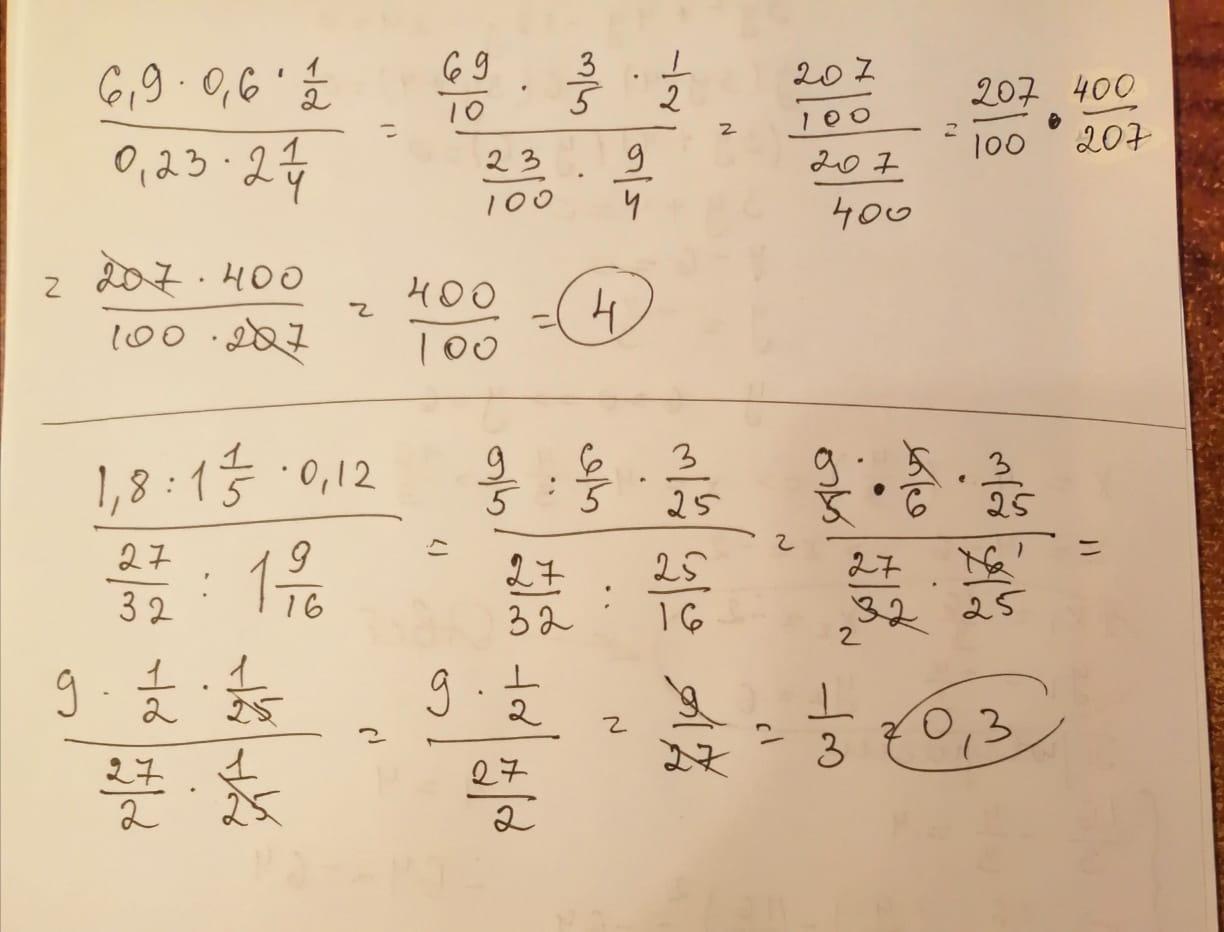 (6,9 · 0,6 · 1/2) / (0,23 · 2 1/4) = (69/10 · 3/5 · 1/2) / (23/100 · 9/4) = (207/100) / (207/400) = 207/100 · 400/207
= (207 · 400) / (100 · 207) = 400/100 = 4
(1,8 : 1 1/5 · 0,12) / (27/32 : 1 9/16) = (9/5 : 6/5 · 3/25) / (27/32 : 25/16) = (9/5 · 5/6 · 3/25) / (27/32 2 · 16 1/25) =
(9 · 1/2 · 1/25) / (27/2 · 1/25) = (9 · 1/2) / (27/2) = 9/27 = 1/3 = 0,3